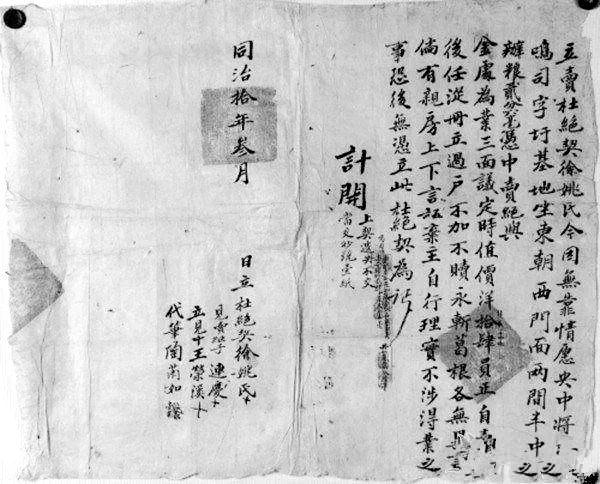 立賣杜絕契徐姚氏今因無靠情愿央中將
鳴司字圩基地坐東朝西門面兩間半中之
辦粮貳分憑中賣絕與
金處為業三面議定時值價洋拾肆員正自賣
後任從冊立過戶不加不贖永斬葛根各無異言
倘有親房上下言訟棄主自行理實不涉得業之
事恐後無憑立此杜絕契為
計開
上契遺失不交
當交抄統壹紙
同治拾年叁月
日立杜絕契徐姚氏十
見賣 連慶十
立見中王榮溪十
代筆陶蘭如